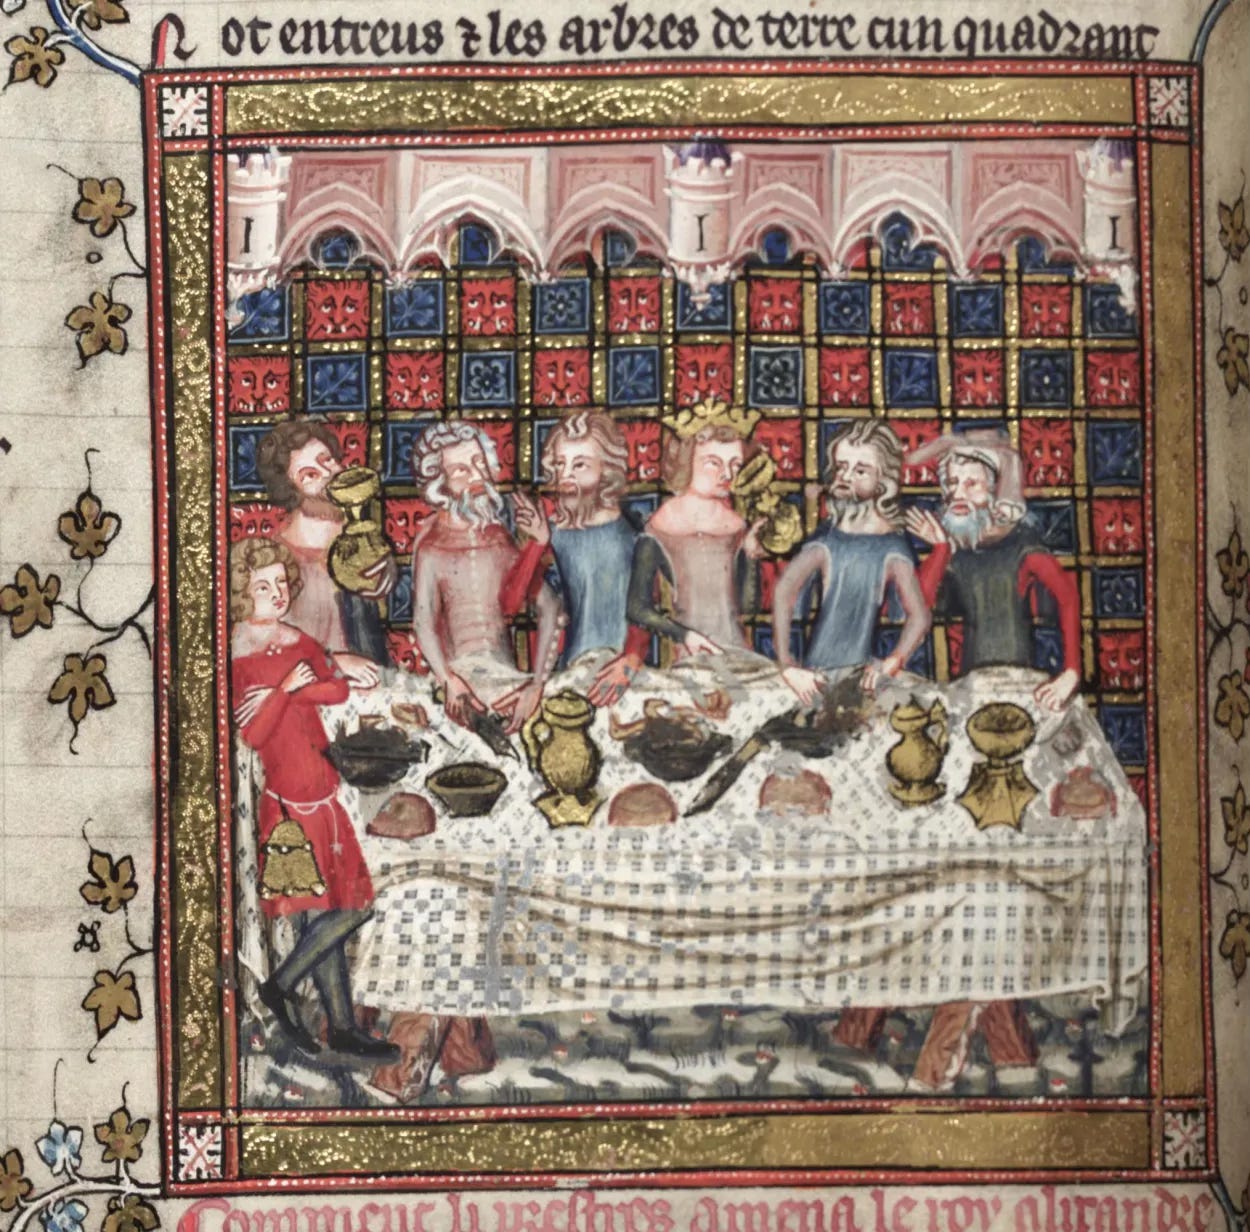 Not entreus ⁊ les arbres de terre cun quadrant
I I I
Comment li prestres amena le roy alixandre